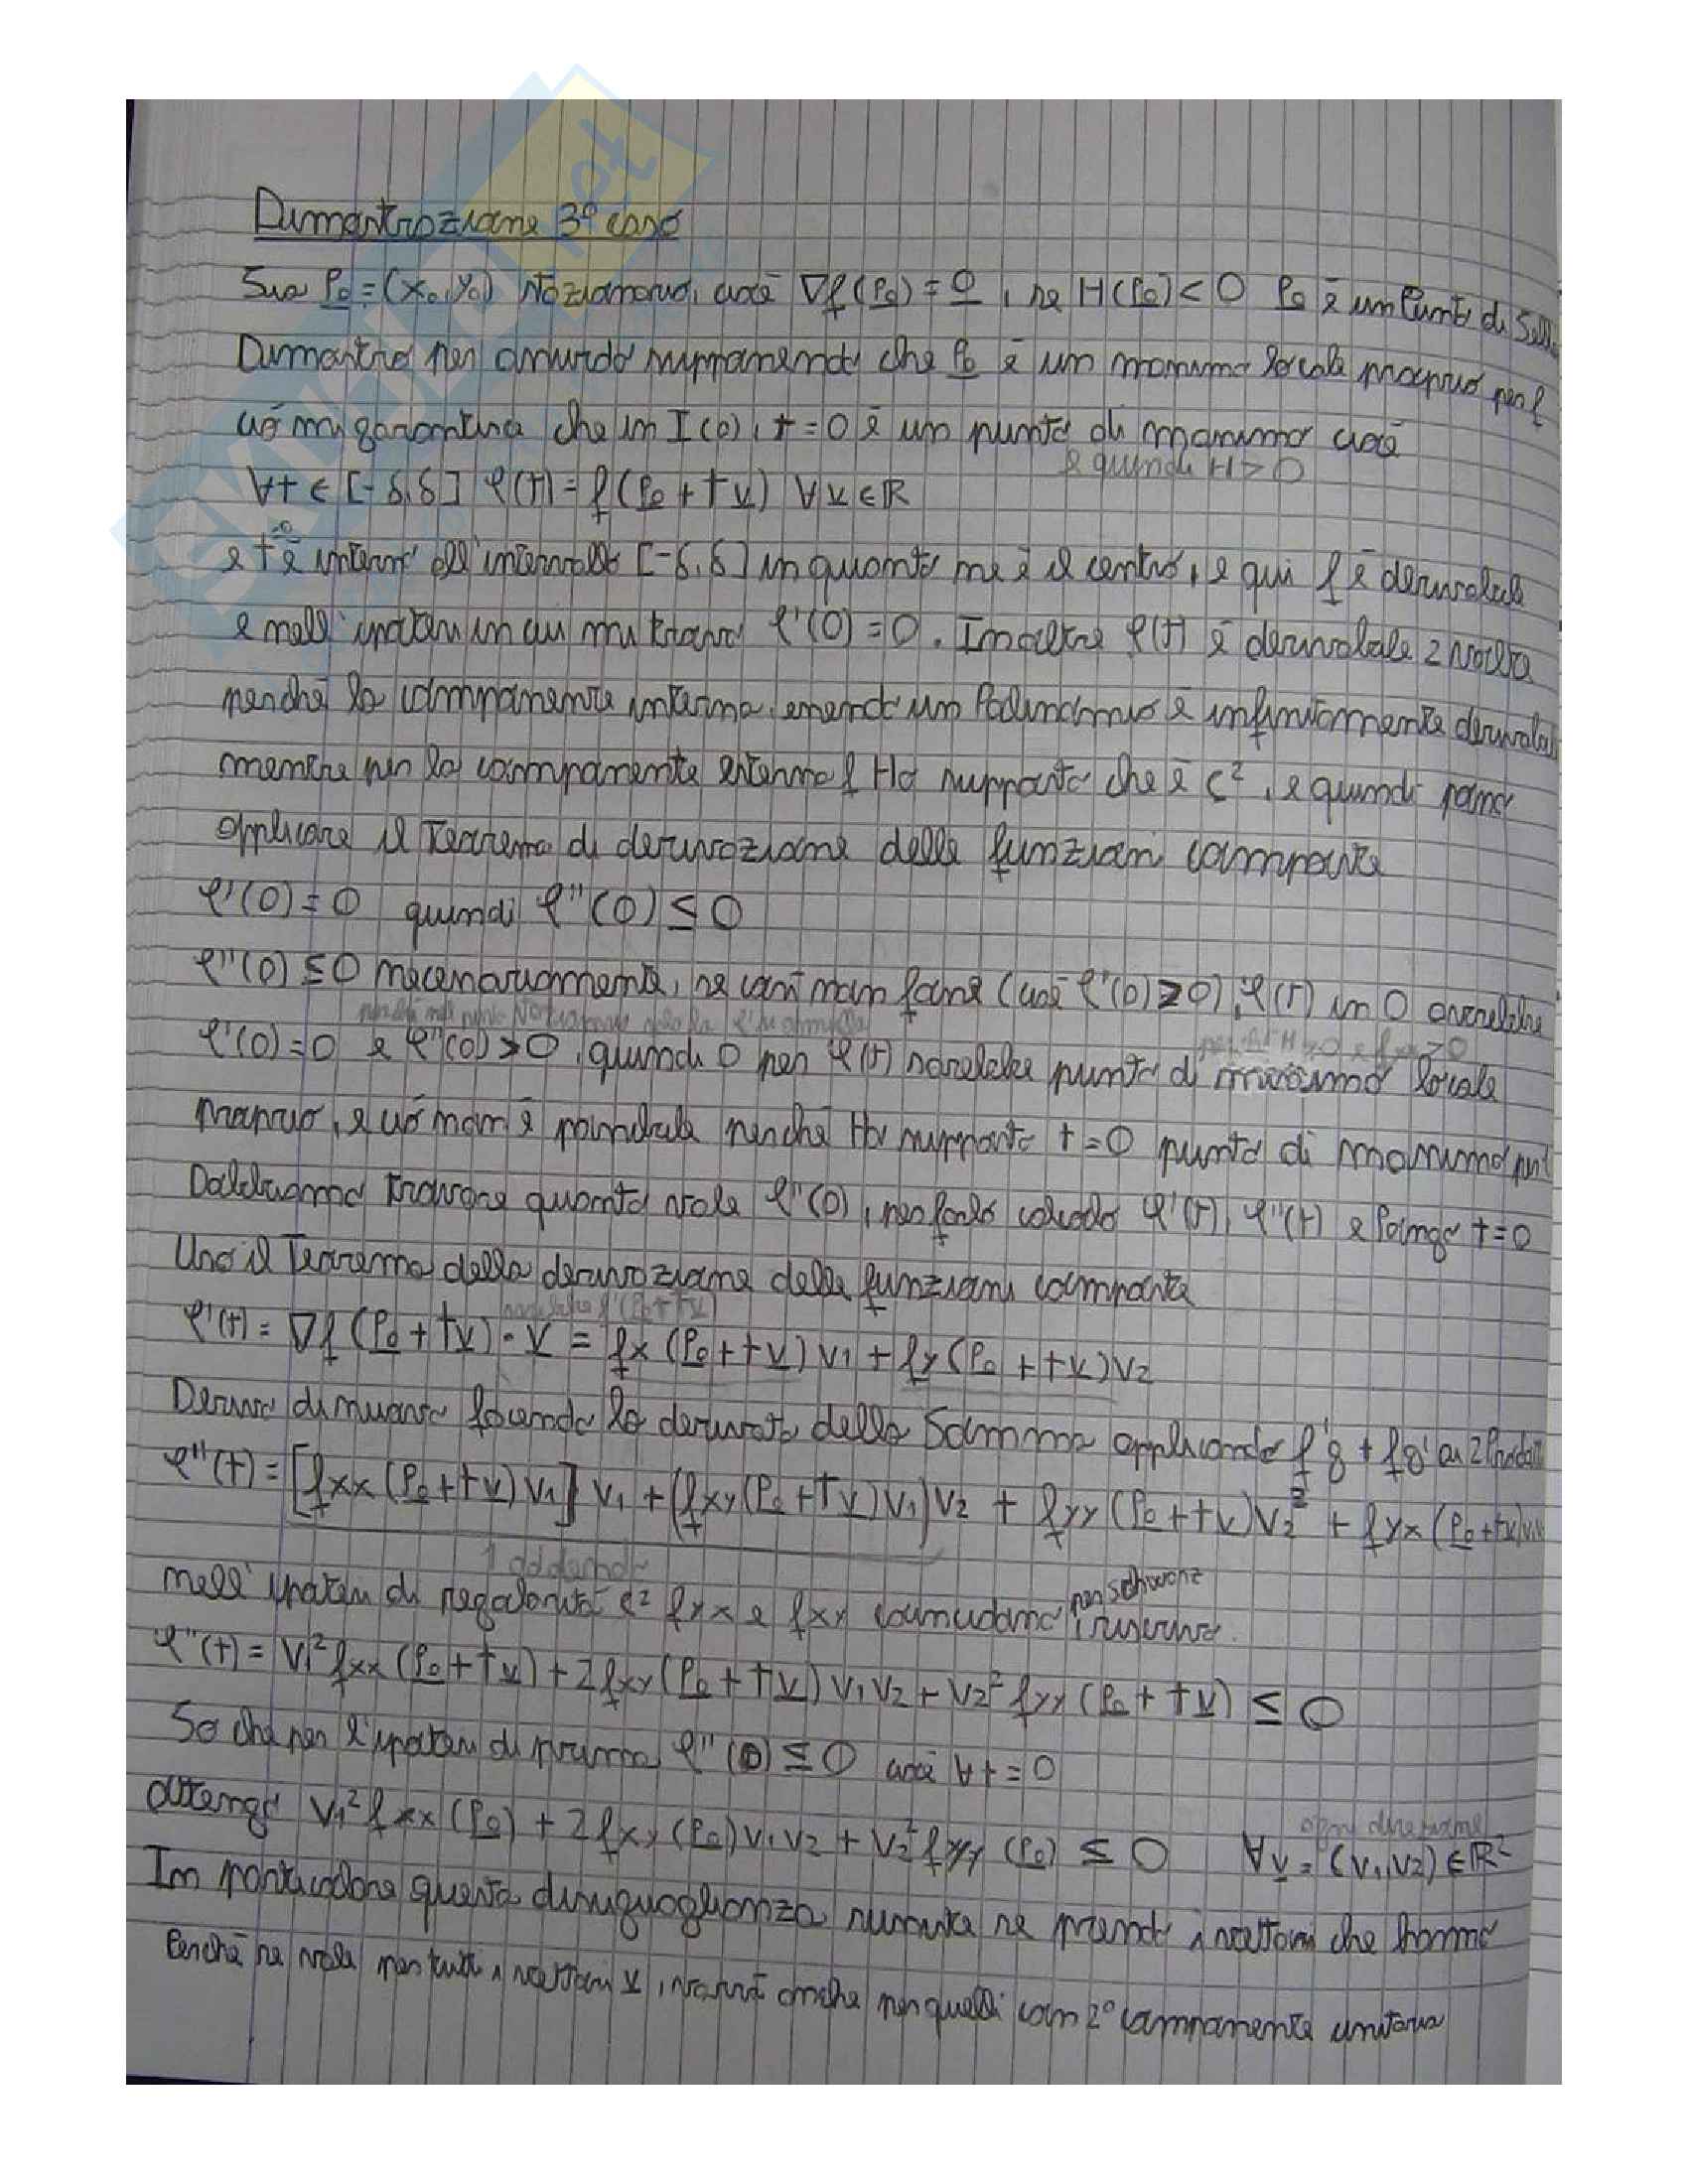 SKUOLA.net
Dimostrazione 3° caso
Sia P0 = (x0, y0) stazionario, cioè ∇f(P0) = 0, se H(P0) < 0 P0 è un Punto di Sella
Dimostro per assurdo supponendo che P0 è un massimo locale proprio per f
ciò mi garantisce che in I(0), t = 0 è un punto di massimo cioè
e quindi H > 0
∀t ∈ [-δ, δ] φ(t) = f(P0 + t v) ∀ v ∈ ℝ
e t=0 è interno all'intervallo [-δ, δ] in quanto ne è il centro, e qui f è derivabile
e nell'ipotesi in cui mi trovo φ'(0) = 0. Inoltre φ(t) è derivabile 2 volte
perché la componente interna, essendo un Polinomio è infinitamente derivabile
mentre per la componente esterna f Ho supposto che è C², e quindi posso
applicare il Teorema di derivazione delle funzioni composte
φ'(0) = 0 quindi φ''(0) ≤ 0
φ''(0) ≤ 0 necessariamente, se così non fosse (cioè φ'(0) ≥ 0), φ(t) in 0 avrebbe
perché nel punto stazionario solo la f' si annulla
φ'(0) = 0 e φ''(0) > 0, quindi 0 per φ(t) sarebbe punto di minimo locale
perché H > 0 e fxx > 0
proprio, e ciò non è possibile perché Ho supposto t = 0 punto di massimo per f
Dobbiamo trovare quanto vale φ''(0), per farlo calcolo φ'(t), φ''(t) e Pongo t = 0
Uso il Teorema della derivazione delle funzioni composte
sarebbe f'(P0 + t v)
φ'(t) = ∇f (P0 + t v) · v = fx (P0 + t v) v1 + fy (P0 + t v) v2
Derivo di nuovo facendo la derivata della Somma applicando f'g + fg' ai 2 Prodotti
φ''(t) = [fxx (P0 + t v) v1] v1 + (fxy (P0 + t v) v1) v2 + fyy (P0 + t v) v2² + fyx (P0 + t v) v1
1 addendo
nell'ipotesi di regolarità C² fyx e fxy coincidono per Schwarz, riscrivo.
φ''(t) = v1² fxx (P0 + t v) + 2 fxy (P0 + t v) v1 v2 + v2² fyy (P0 + t v) ≤ 0
So che per l'ipotesi di prima φ''(0) ≤ 0 cioè ∀ t = 0
ogni direzione
ottengo v1² fxx (P0) + 2 fxy (P0) v1 v2 + v2² fyy (P0) ≤ 0 ∀ v = (v1, v2) ∈ ℝ²
In particolare questa disuguaglianza sussiste se prendo i vettori che hanno
Perché se vale per tutti i vettori v, varrà anche per quelli con 2° componente unitaria